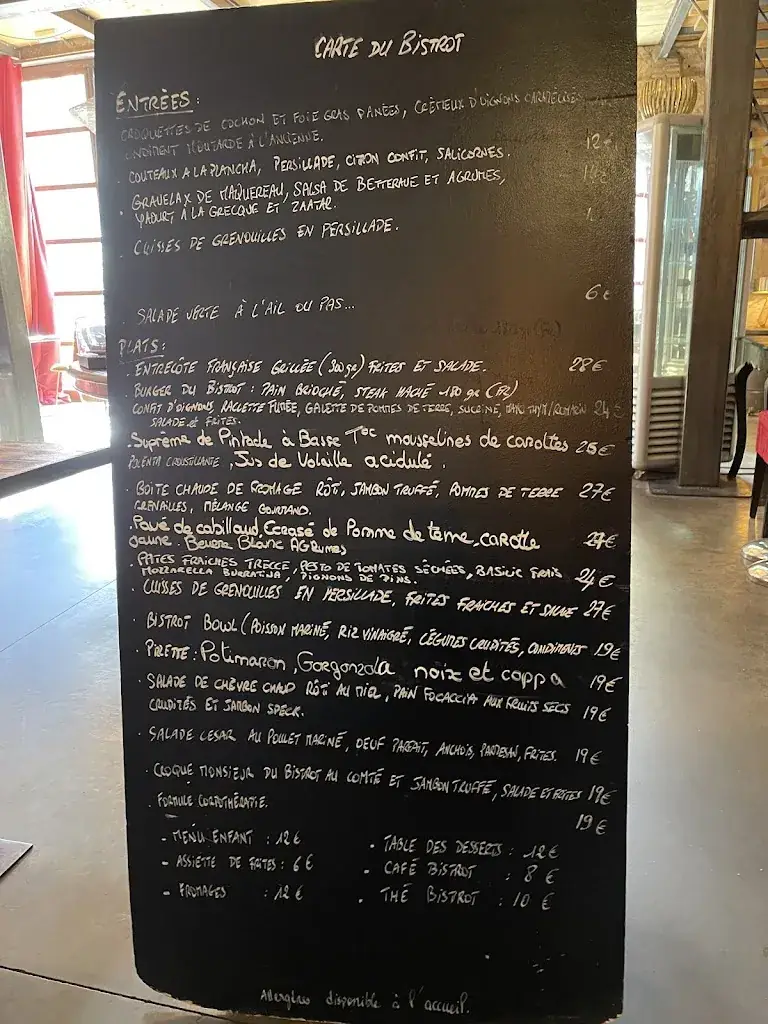 CARTE DU BISTROT
ENTRÉES :
CROQUETTES DE COCHON ET FOIE GRAS PANÉES, CRÉMEUX D'OIGNONS CARAMÉLISÉS
CONDIMENT MOUTARDE À L'ANCIENNE. 12€
· COUTEAUX A LA PLANCHA, PERSILLADE, CITRON CONFIT, SALICORNES.
· GRAVELAX DE MAQUEREAU, SALSA DE BETTERAVE ET AGRUMES,
YAOURT A LA GRECQUE ET ZAATAR.
· CUISSES DE GRENOUILLES EN PERSILLADE.
· SALADE VERTE À L'AIL OU PAS... 6€
PLATS :
· ENTRECÔTE FRANÇAISE GRILLÉE (300gr) FRITES ET SALADE. 28€
· BURGER DU BISTROT : PAIN BRIOCHÉ, STEAK HACHÉ 180 gr (FR)
CONFIT D'OIGNONS, RACLETTE FUMÉE, GALETTE DE POMMES DE TERRE, SUCRINE, THYM/ROMARIN 24€
SALADE et FRITES.
· Suprême de Pintade à Basse T°C mousselines de carottes 26€
POLENTA CROUSTILLANTE, Jus de Volaille acidulé.
· BOÎTE CHAUDE DE FROMAGE RÔTI, JAMBON TRUFFÉ, POMMES DE TERRE 27€
GRENAILLES, MÉLANGE GOURMAND.
· Pavé de cabillaud, Ecrasé de Pomme de terre, carotte 27€
Jaune. Beurre Blanc AGRumes
· PÂTES FRAICHES TRECCE, PESTO DE TOMATES SÉCHÉES, BASILIC FRAIS 24€
MOZZARELLA BURRATINA, PIGNONS DE PINS.
· CUISSES DE GRENOUILLES EN PERSILLADE, FRITES FRAICHES ET SALADE 27€
· BISTROT BOWL (POISSON MARINÉ, RIZ VINAIGRÉ, LÉGUMES CRUDITÉS, CONDIMENTS 19€
· PINSETTE : Potimaron, Gorgonzola noix et coppa 19€
· SALADE DE CHÈVRE CHAUD RÔTI AU MIEL, PAIN FOCACCIA AUX FRUITS SECS 19€
CRUDITÉS ET JAMBON SPECK.
· SALADE CESAR AU POULET MARINÉ, OEUF PARFAIT, ANCHOIS, PARMESAN, FRITES. 19€
· CROQUE MONSIEUR DU BISTROT AU COMTÉ ET JAMBON TRUFFÉ, SALADE ET FRITES 19€
· FORMULE CORPOTHÉRAPIE. 19€
- MENU ENFANT : 12€
- ASSIETTE DE FRITES : 6€
- FROMAGES : 12€
· TABLE DES DESSERTS : 12€
· CAFÉ BISTROT : 8€
· THÉ BISTROT : 10€
Allergènes disponible à l'accueil.